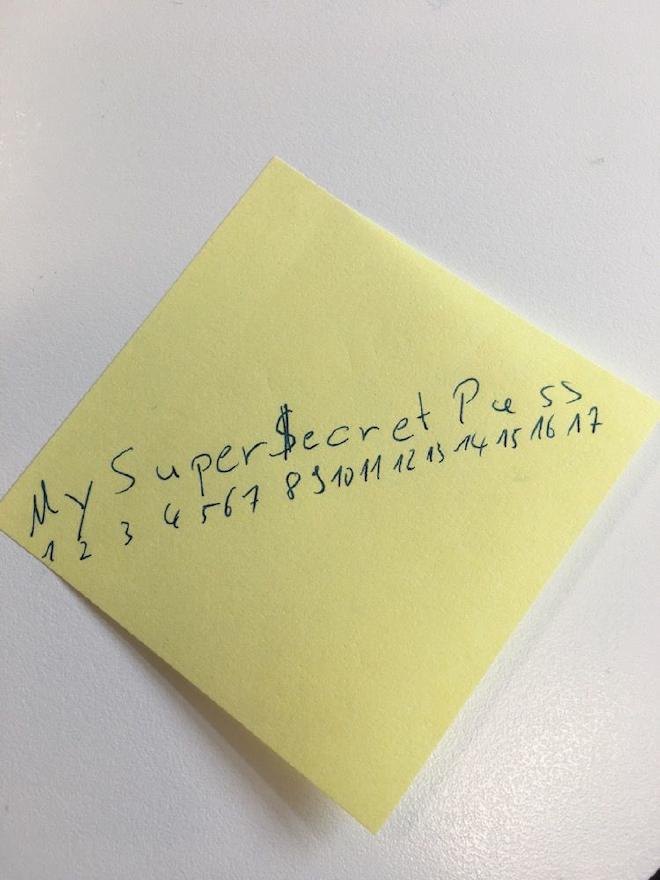 My Super$ecret Pass
1 2 3 4 5 6 7 8 9 10 11 12 13 14 15 16 17